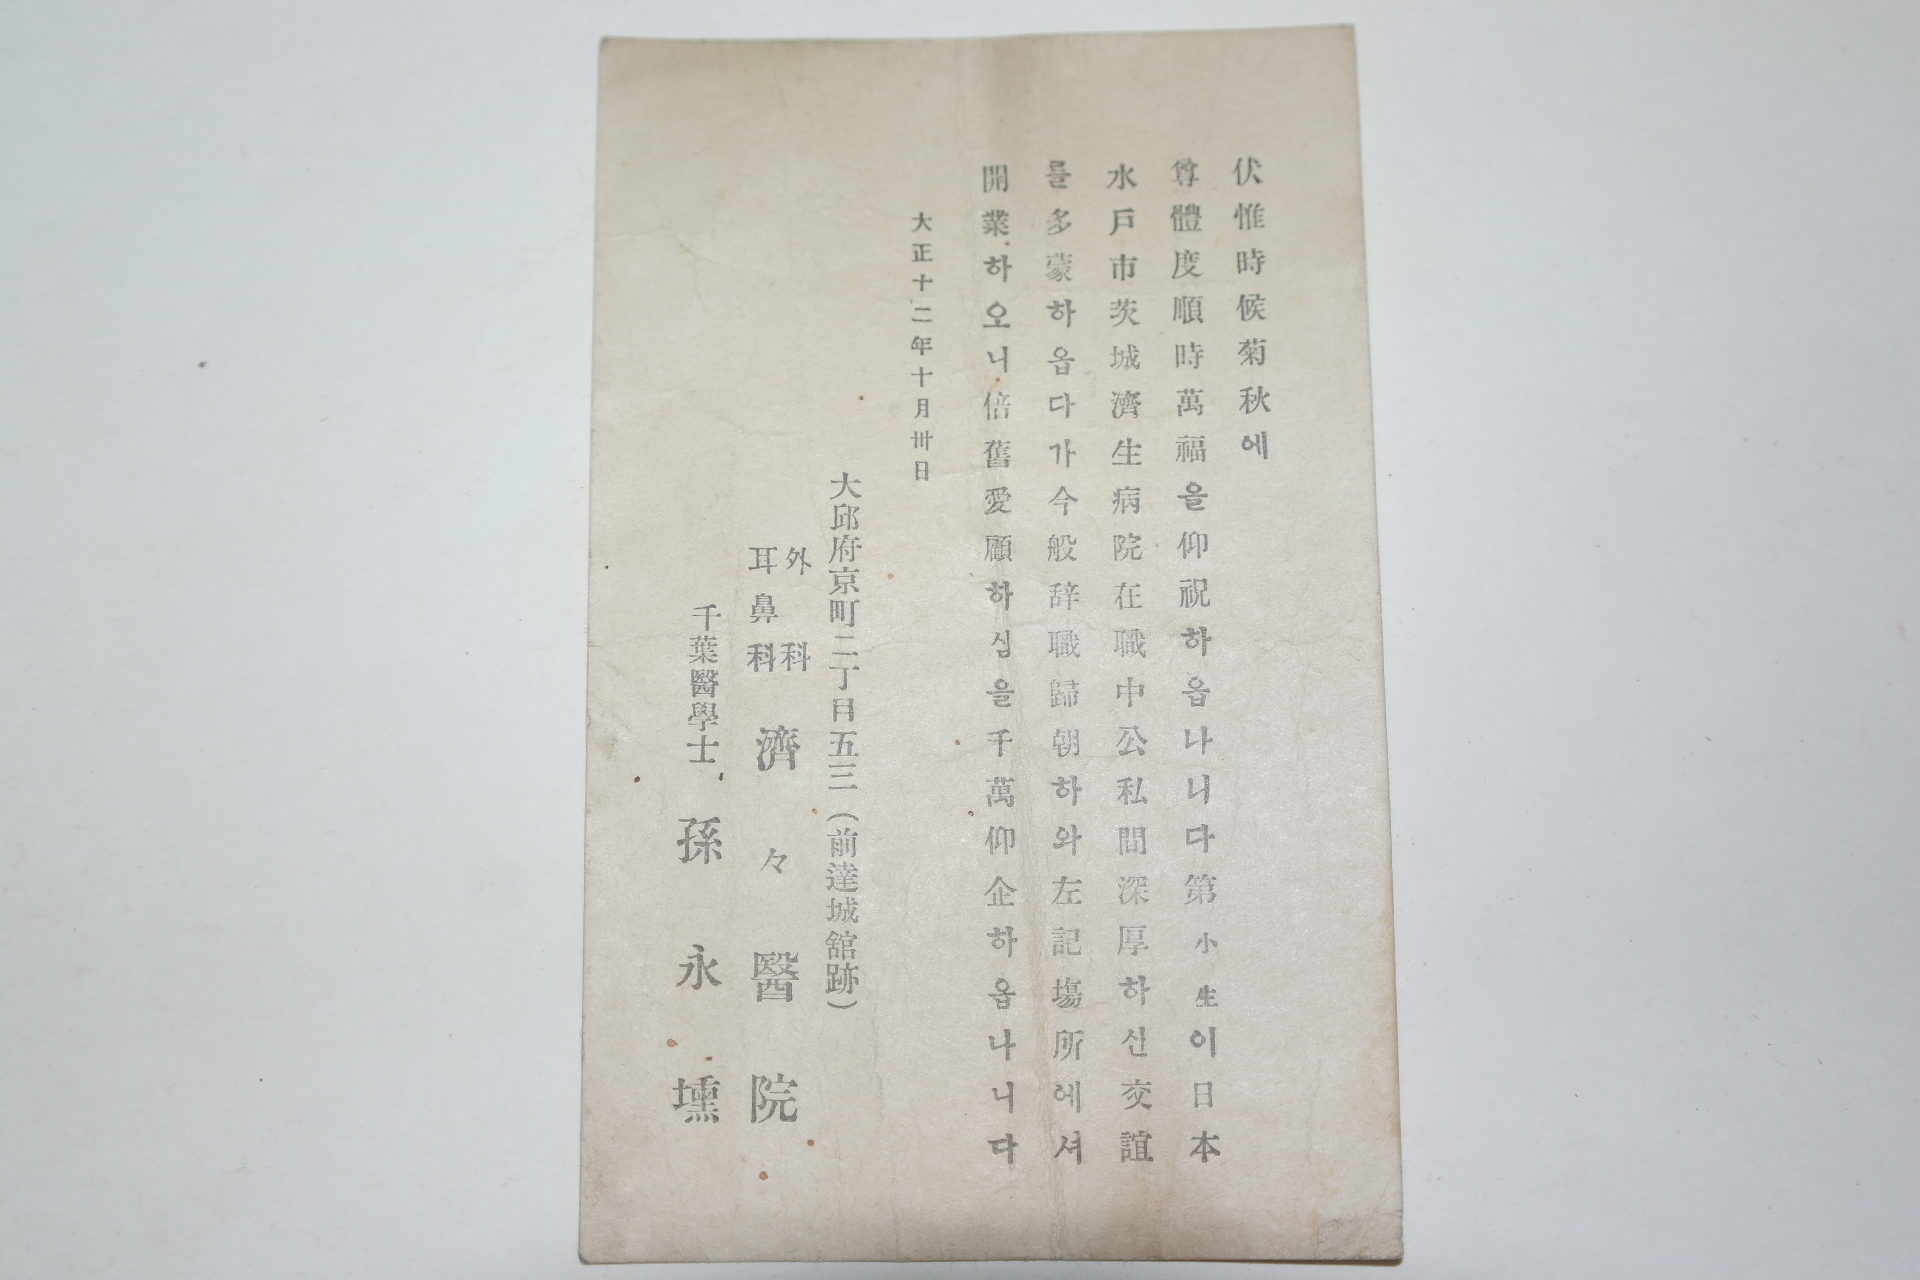 伏惟時候菊秋에
尊體度順時萬福을仰祝하옵나니다第小生이日本
水戶市茨城濟生病院在職中公私間深厚하신交誼
를多蒙하옵다가今般辞職歸朝하와左記塲所에셔
開業하오니倍舊愛顧하심을千萬仰企하옵나니다
大正十二年十月卅日
大邱府京町二丁目五三(前達城舘跡)
外科
耳鼻科
濟々醫院
千葉醫學士 孫永壎